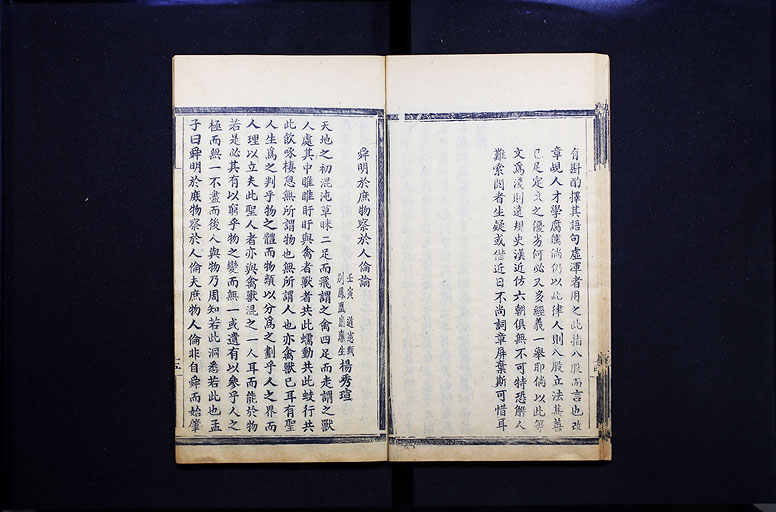 有斟酌擇其語句虛渾者用之此指八股而言也改
章峴人才學腐儒倘仍以此律人則八股立法甚善
已足定文之優劣何必又多經義一舉耶倘以此等
文爲淺則遠規史漢近仿六朝俱無不可特恐解人
難索閱者生疑或偕近日不尚詞章屏棄斯可惜耳
舜明於庶物察於人倫論
壬寅 道憲甄
別鳳凰廳廩生 楊秀瑄
天地之初混沌草昧二足而飛謂之禽四足而走謂之獸
人處其中睢睢盱盱與禽者獸者共此蠕動共此蚑行共
此飲啄棲息無所謂物也無所謂人也亦禽獸已耳有聖
人生爲之判乎物之體而物類以分爲之劃乎人之界而
人理以立夫此聖人者亦與禽獸混之一人耳而能於物
若是必其有以窮乎物之變而無一或遺有以參乎人之
極而無一不盡而後人與物乃周知若此洞悉若此也孟
子曰舜明於庶物察於人倫夫庶物人倫非自舜而始肇